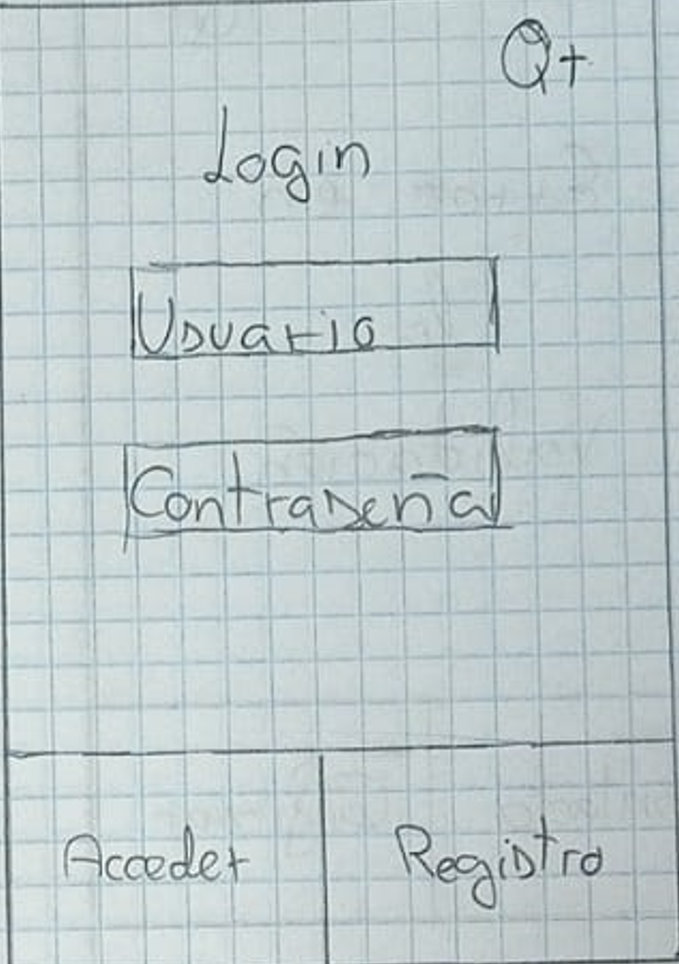 Q+
Login
Usuario
Contraseña
Acceder
Registro